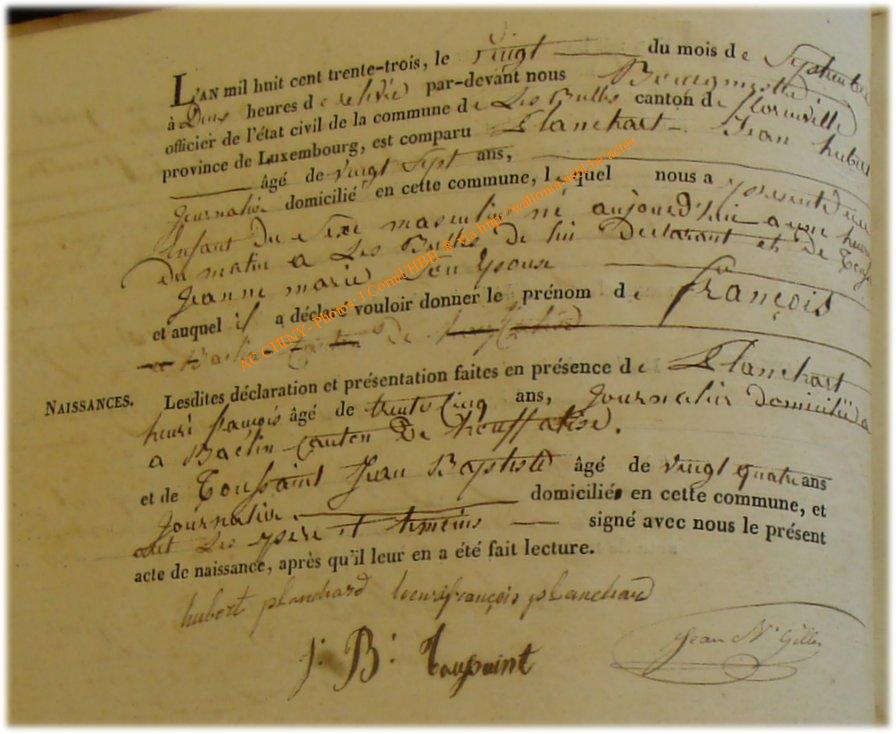 L'AN mil huit cent trente-trois, le vingt du mois de Septembre
à Deux heures de relevée par-devant nous Bourgmestre
officier de l'état civil de la commune de Les Bulles canton de florenville
province de Luxembourg, est comparu Planchart Jean hubert
âgé de vingt Sept ans,
Journalier domicilié en cette commune, lequel nous a présenté un
Enfant du Sexe masculin né aujourd'hui a une heure
du matin a Les Bulles de lui Declarant et de
Jeanne marie Son Epouse
et auquel il a déclaré vouloir donner le prénom de françois
NAISSANCES. Lesdites déclaration et présentation faites en présence de Planchart
henri françois âgé de trente Cinq ans, Journalier domicilié
a Canton De houffalise.
et de Toussaint Jean Baptiste âgé de vingt quatre ans
Journalier domiciliés en cette commune, et
ont Les père et temoins signé avec nous le présent
acte de naissance, après qu'il leur en a été fait lecture.
hubert planchard henri françois planchard
J: B: Toussaint
Jean Gilles